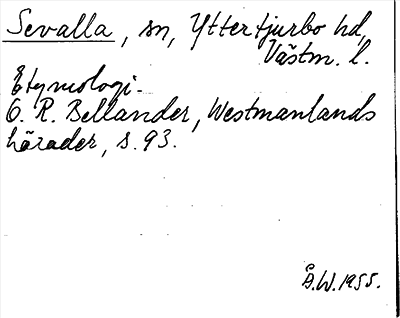 Sevalla, sn, Yttertjurbo hd,
Västm. l.
Etymologi.
O. R. Bellander, Westmanlands
härader, s. 93.
Å.W. 1955.